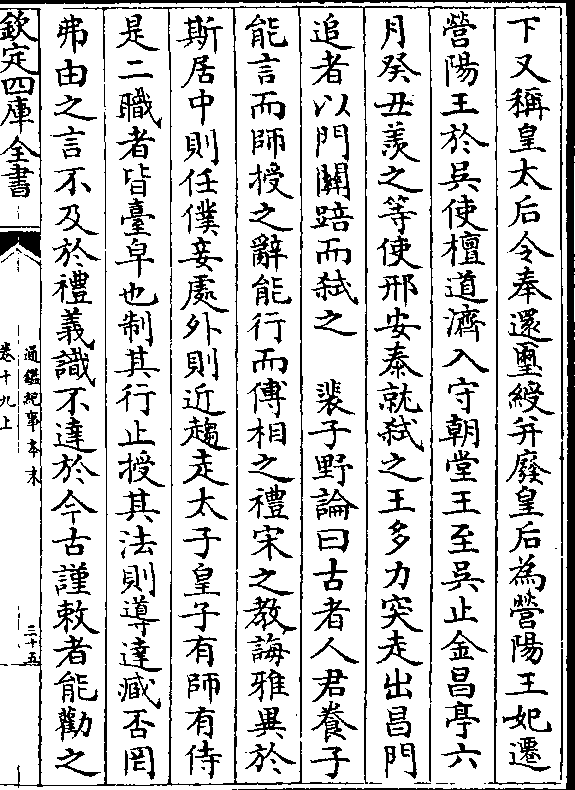 下又稱皇太后令奉還璽綬并廢皇后為營陽王妃遷
營陽王於吳使檀道濟入守朝堂王至吳止金昌亭六
月癸丑羨之等使邢安泰就弑之王多力突走出昌門
追者以門關踣而弑之　裴子野論曰古者人君養子
能言而師授之辭能行而傅相之禮宋之教誨雅異於
斯居中則任僕妾處外則近趨走太子皇子有師有侍
是二職者皆臺皁也制其行止授其法則導達臧否罔
弗由之言不及於禮義識不達於今古謹敕者能勸之
欽定四庫全書
通鑑紀事本末
卷十九上
三十五